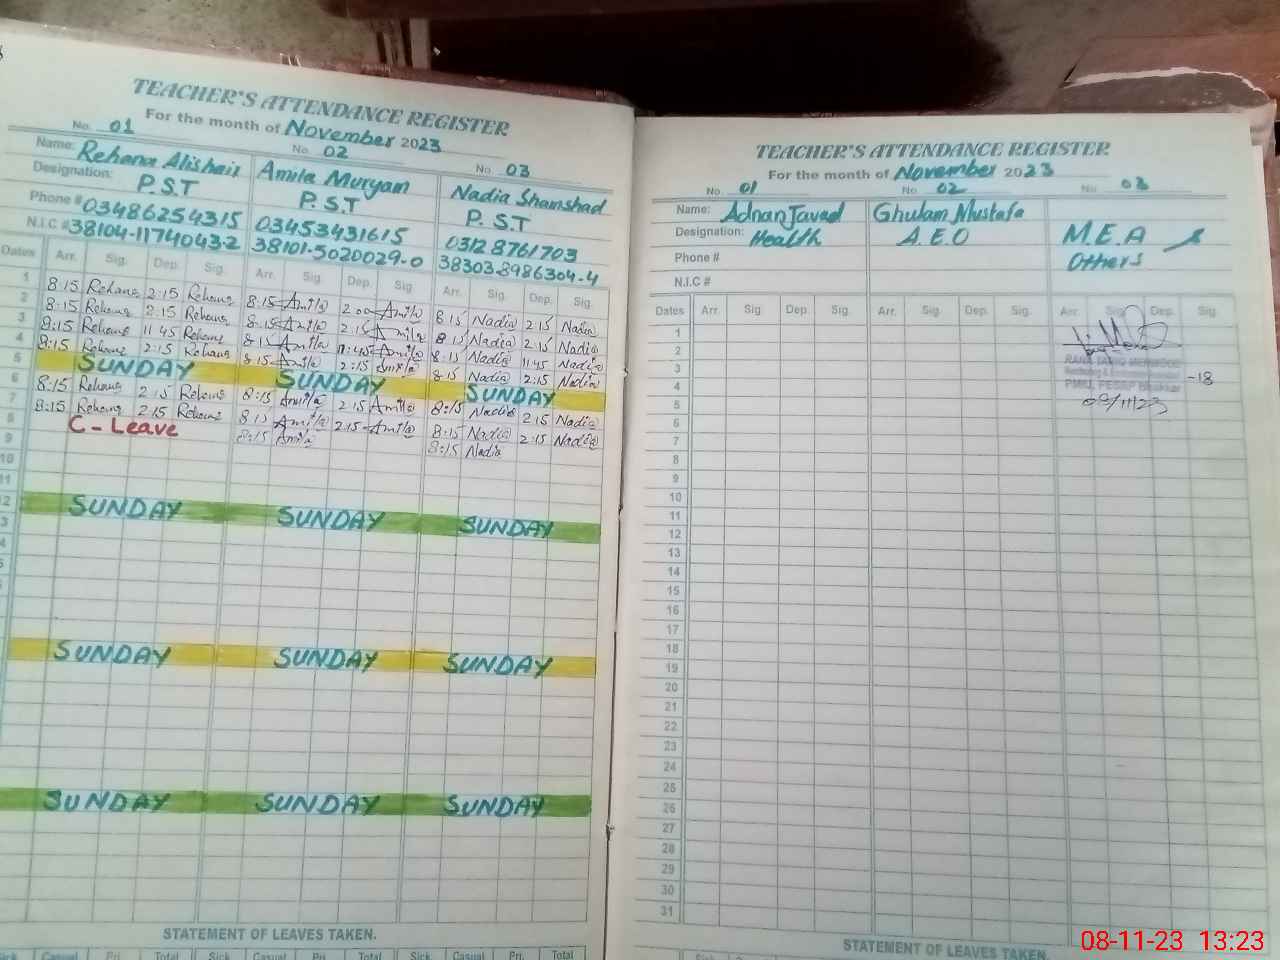 TEACHER'S ATTENDANCE REGISTER
For the month of November 2023
No. 01 No. 02 No. 03
Name: Rehana Alishair Amila Muryam Nadia Shamshad
Designation: P.S.T P.S.T P.S.T
Phone # 03486254315 03453431615 03128761703
N.I.C # 38104-1174043-2 38101-5020029-0 38303-8986304-4
Dates Arr. Sig. Dep. Sig. Arr. Sig. Dep. Sig. Arr. Sig. Dep. Sig.
1 8:15 Rehana 2:15 Rehana 8:15 Amila 2 00 Amila 8:15 Nadia 2:15 Nadia
2 8:15 Rehana 2:15 Rehana 8:15 Amila 2:15 Amila 8:15 Nadia 2:15 Nadia
3 8:15 Rehana 11 45 Rehana 8:15 Amila 11:45 Amila 8:15 Nadia 11 45 Nadia
4 8:15 Rehana 2:15 Rehana 8:15 Amila 2:15 Amila 8:15 Nadia 2:15 Nadia
5 SUNDAY SUNDAY SUNDAY
6 8:15 Rehana 2:15 Rehana 8:15 Amila 2:15 Amila 8:15 Nadia 2:15 Nadia
7 8:15 Rehana 2:15 Rehana 8:15 Amila 2:15 Amila 8:15 Nadia 2:15 Nadia
8 C-Leave 8:15 Amila 8:15 Nadia
9
10
11
SUNDAY SUNDAY SUNDAY
SUNDAY SUNDAY SUNDAY
SUNDAY SUNDAY SUNDAY
STATEMENT OF LEAVES TAKEN.
Sick Casual Pri. Total Sick Casual Pri. Total Sick Casual Pri. Total
TEACHER'S ATTENDANCE REGISTER
For the month of November 2023
No. 01 No. 02 No. 03
Name: Adnan Javad Ghulam Mustafa
Designation: Health A.E.O M.E.A
Phone # Others
N.I.C #
Dates Arr. Sig. Dep. Sig. Arr. Sig. Dep. Sig. Arr. Sig. Dep. Sig.
1
2
RANA TARIQ MEHMOOD
3
-18
4
PMIU, PESRP Bhakkar
5
08/11/23
6
7
8
9
10
11
12
13
14
15
16
17
18
19
20
21
22
23
24
25
26
27
28
29
30
31
STATEMENT OF LEAVES TAKEN.
08-11-23 13:23